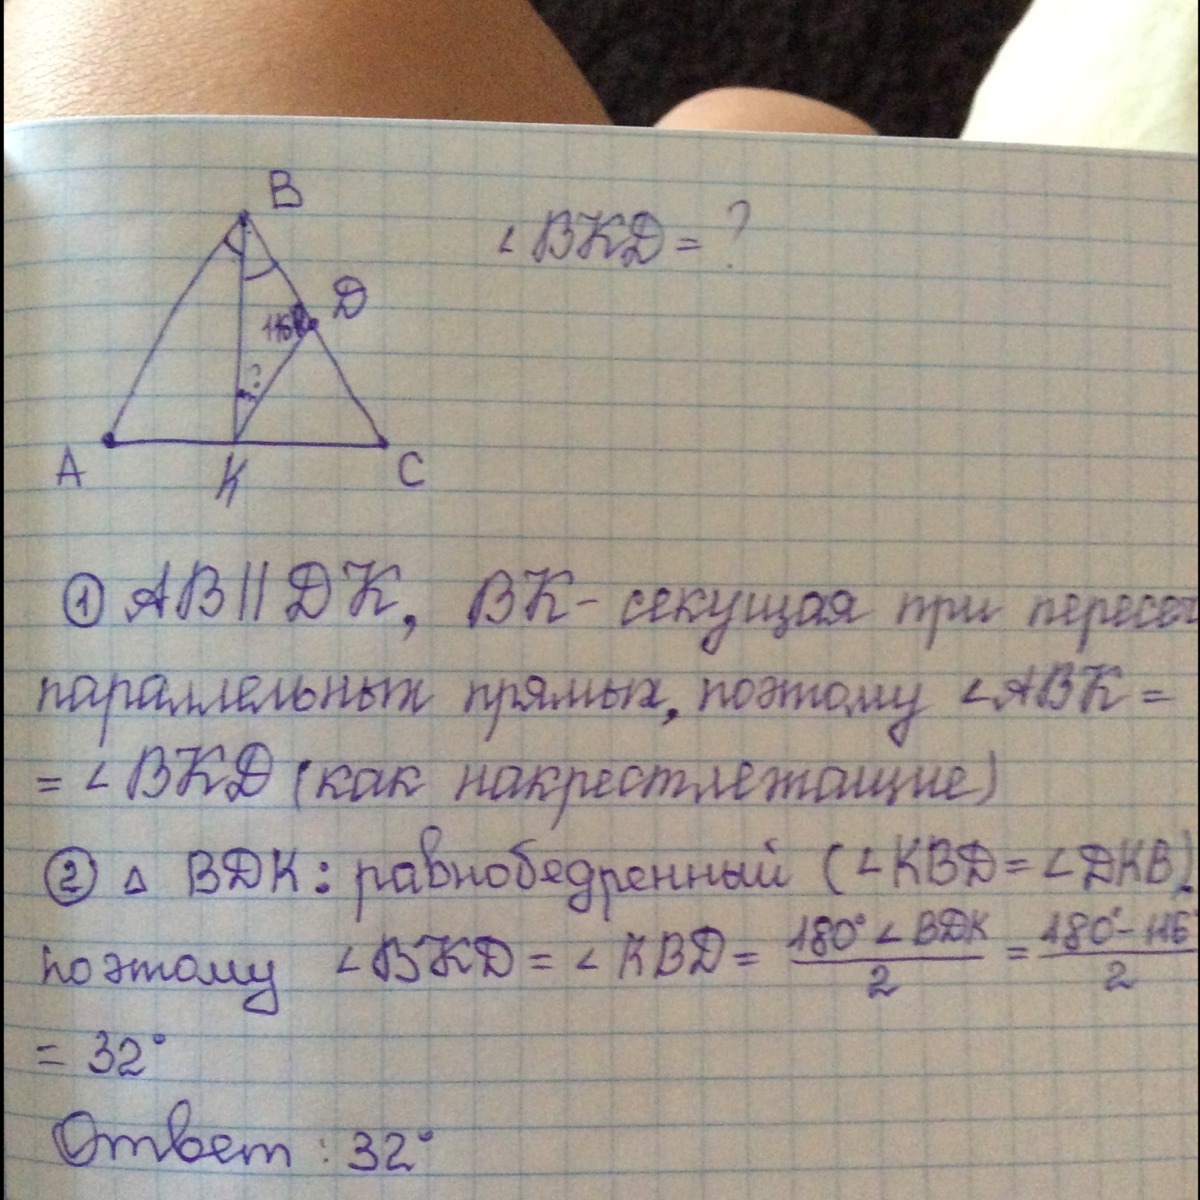 B
∠BKD = ?
D
116°
?
A
K
C
① AB || DK, BK - секущая при пересеч
параллельных прямых, поэтому ∠ABK =
= ∠BKD (как накрестлежащие)
② △ BDK : равнобедренный (∠KBD = ∠DKB),
поэтому ∠BKD = ∠KBD = 180° ∠BDK / 2 = 180° - 116 / 2
= 32°
Ответ : 32°